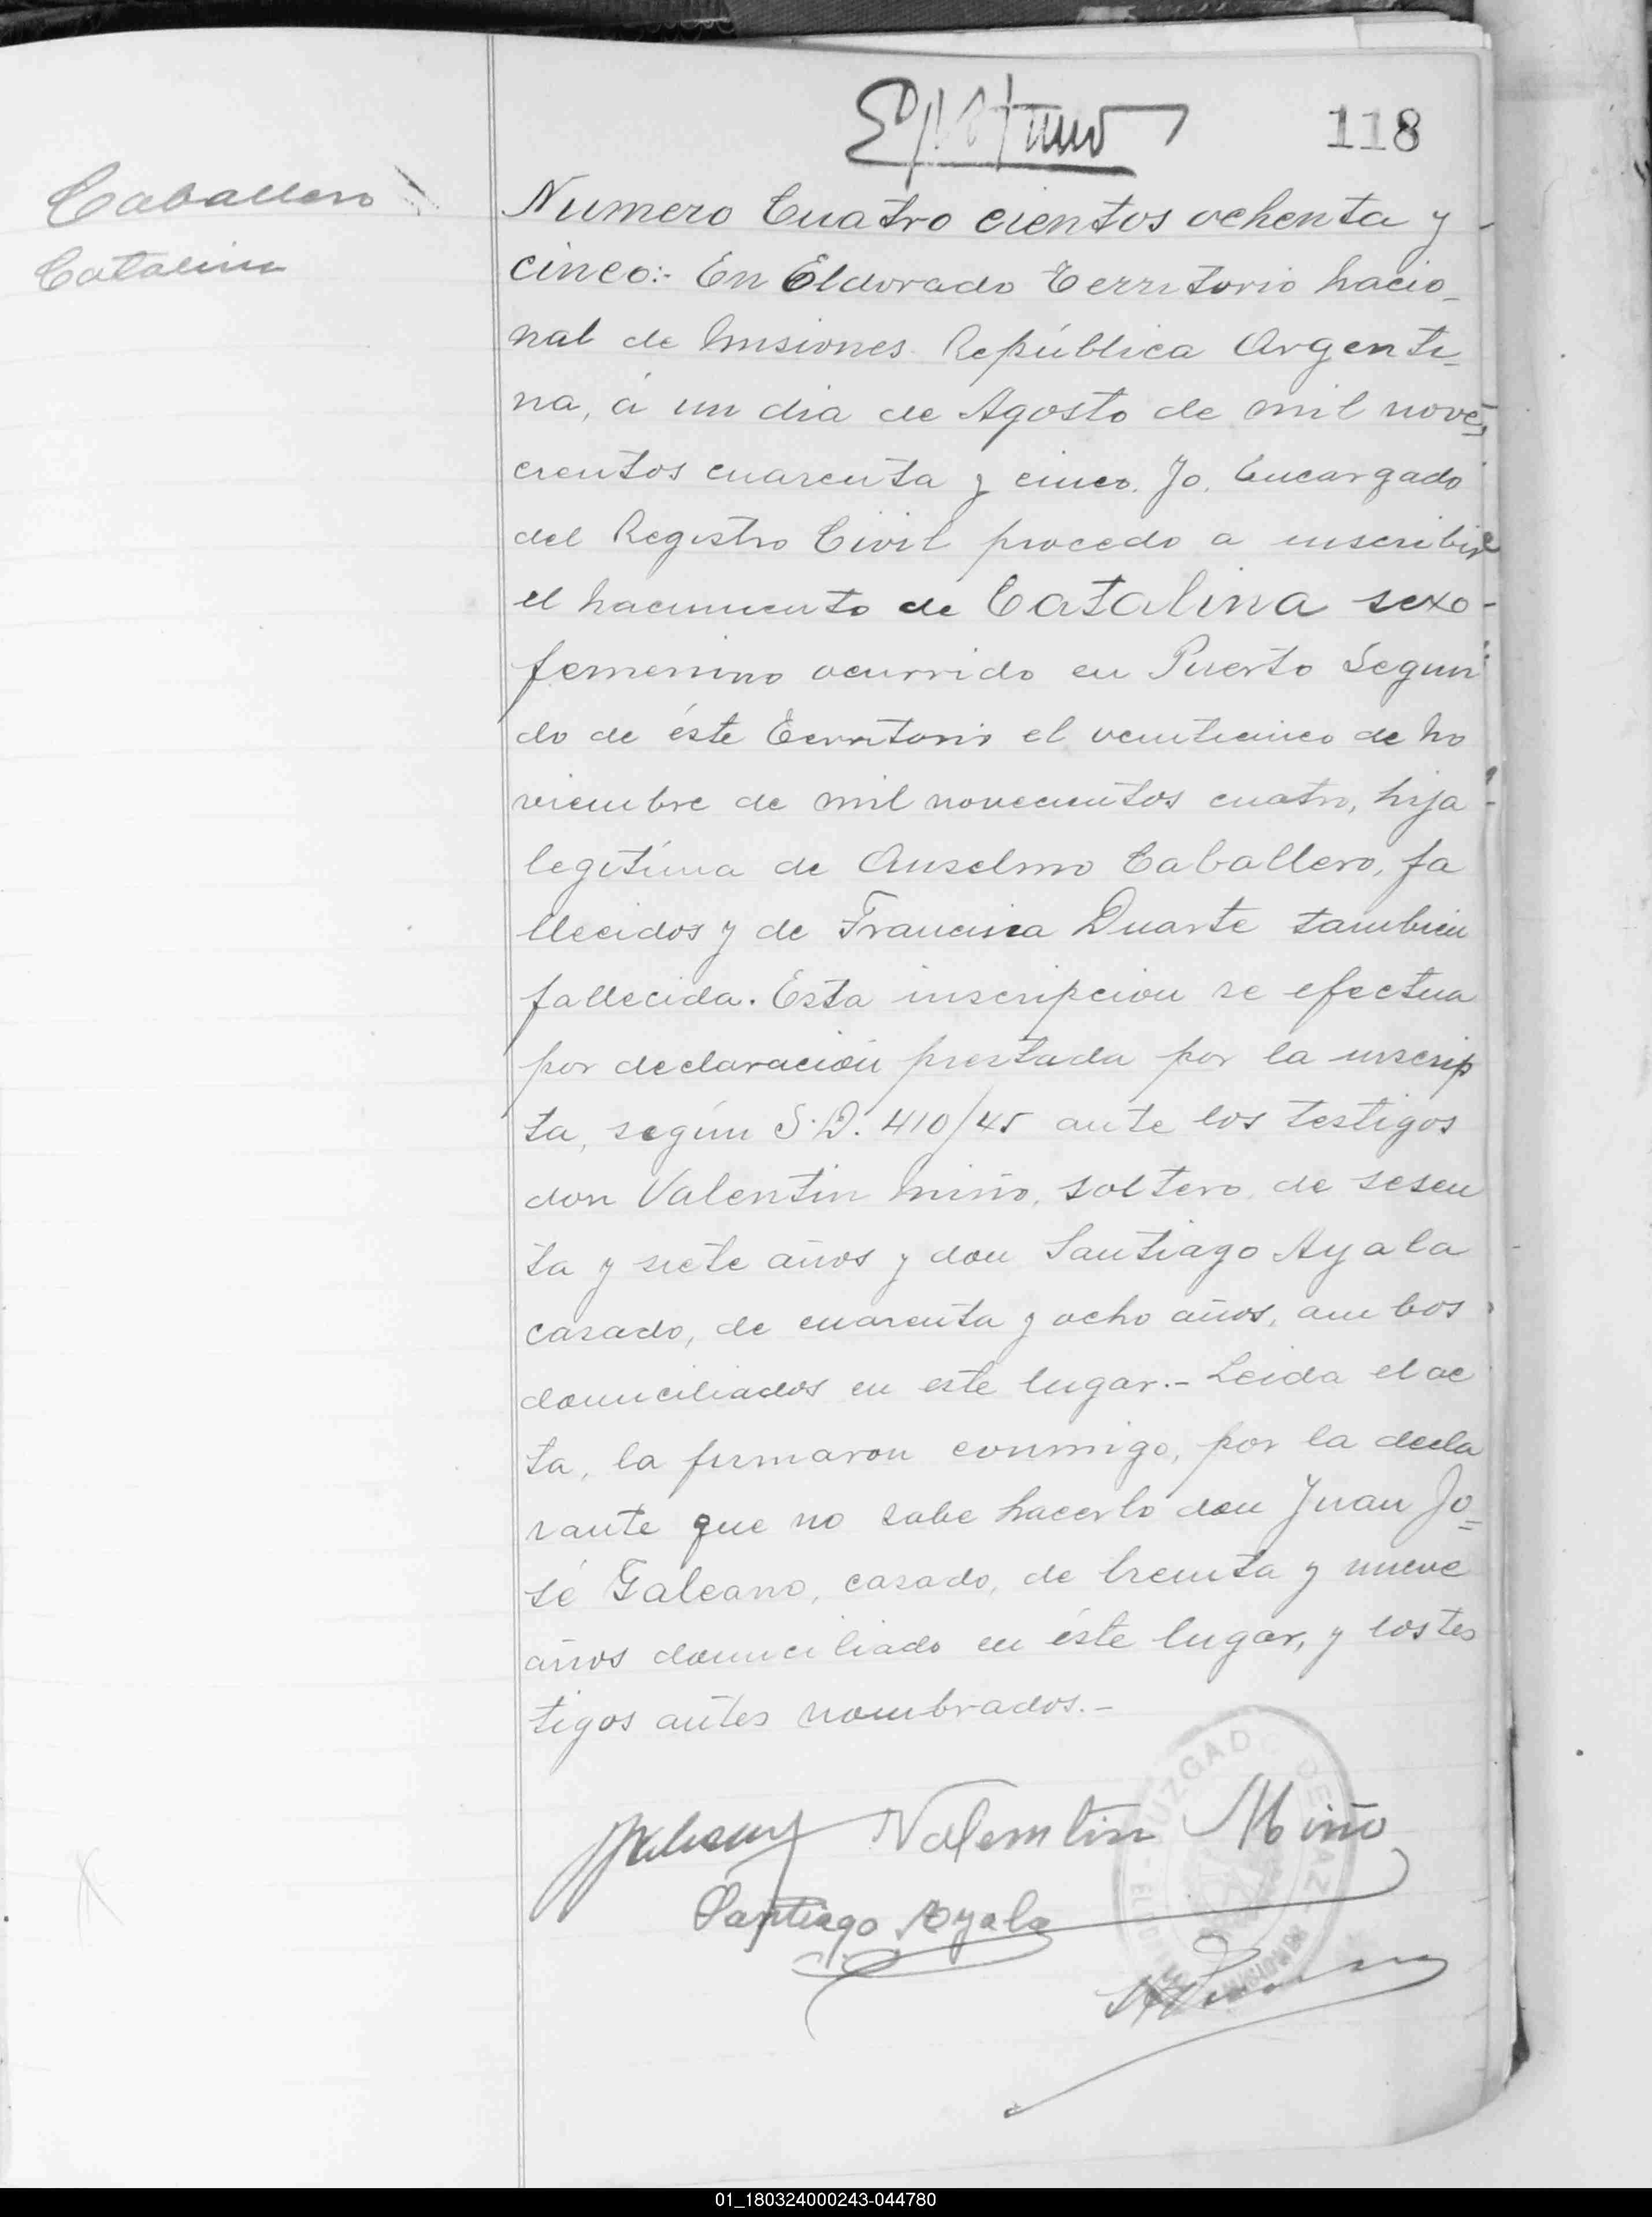 118
Caballero
Catalina
Numero Cuatro cientos ochenta y -
cinco:- En Eldorado Territorio Nacio_
nal de Misiones República Argenti_
na, á un dia de Agosto de mil nove=
cientos cuarenta y cinco. Yo, Encargado
del Registro Civil procedo a inscribir
el Nacimiento de Catalina sexo-
femenino ocurrido en Puerto Segun
do de éste Territorio el veinticinco de No
viembre de mil novecientos cuatro, hija -
legítima de Anselmo Caballero, fa
llecidos y de Francisca Duarte tambien
fallecida. Esta inscripcion se efectua
por declaración prestada por la inscrip
ta, según S.D. 410/45 ante los testigos
don Valentin Miño, soltero, de sesen
ta y siete años y don Santiago Ayala
casado, de cuarenta y ocho años, ambos
domiciliados en este lugar.- Leida el ac
ta, la firmaron conmigo, por la decla
rante que no sabe hacerlo don Juan Jo=
sé Galeano, casado, de treinta y nueve
años domiciliado en éste lugar, y los tes
tigos antes nombrados.-
JUZGADO DE PAZ
Valemtin Miño
Santiago Ayala
01_180324000243-044780